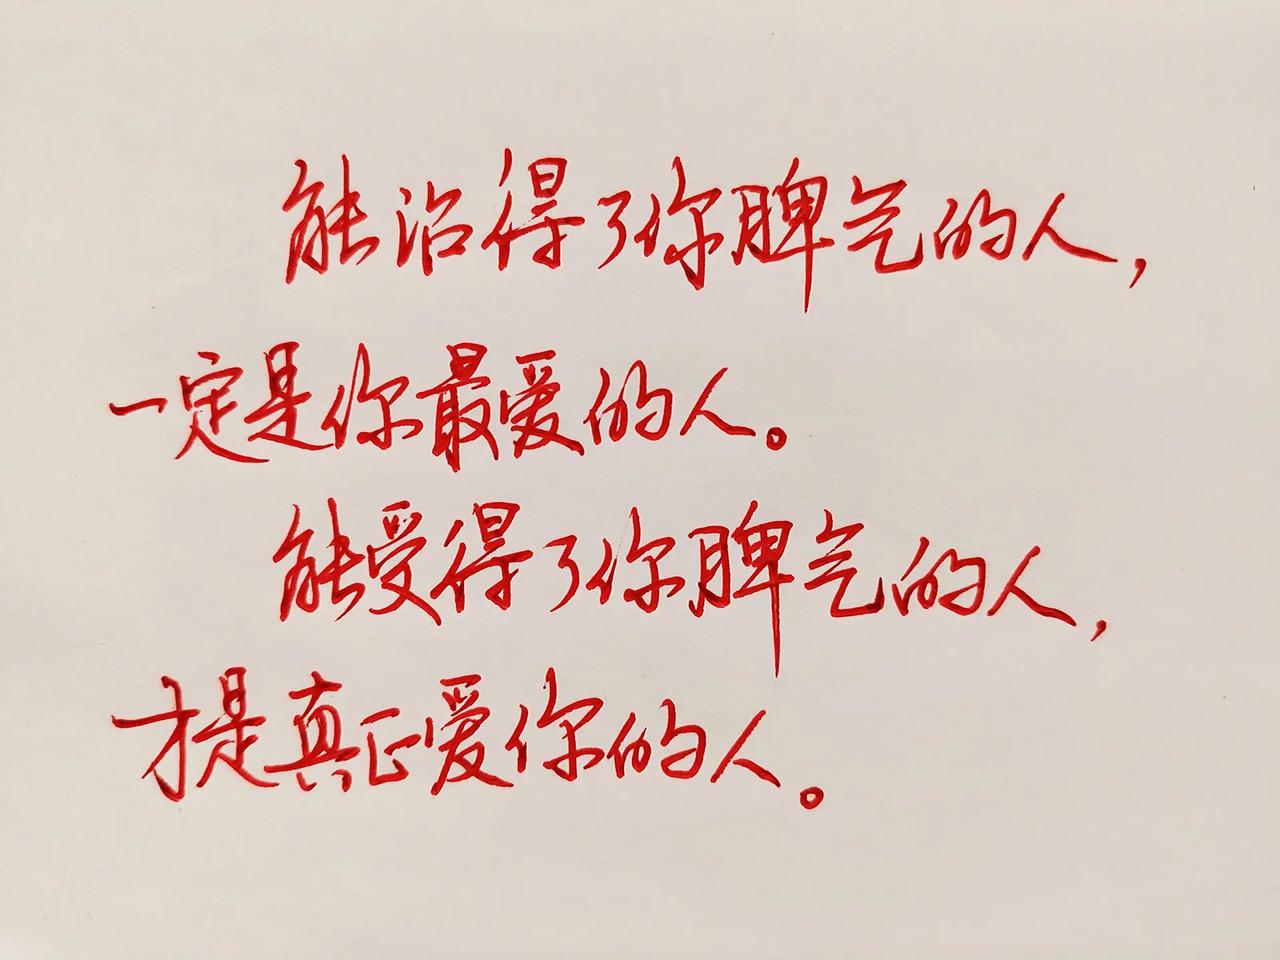 能治得了你脾气的人，
一定是你最爱的人。
能受得了你脾气的人，
才是真正爱你的人。